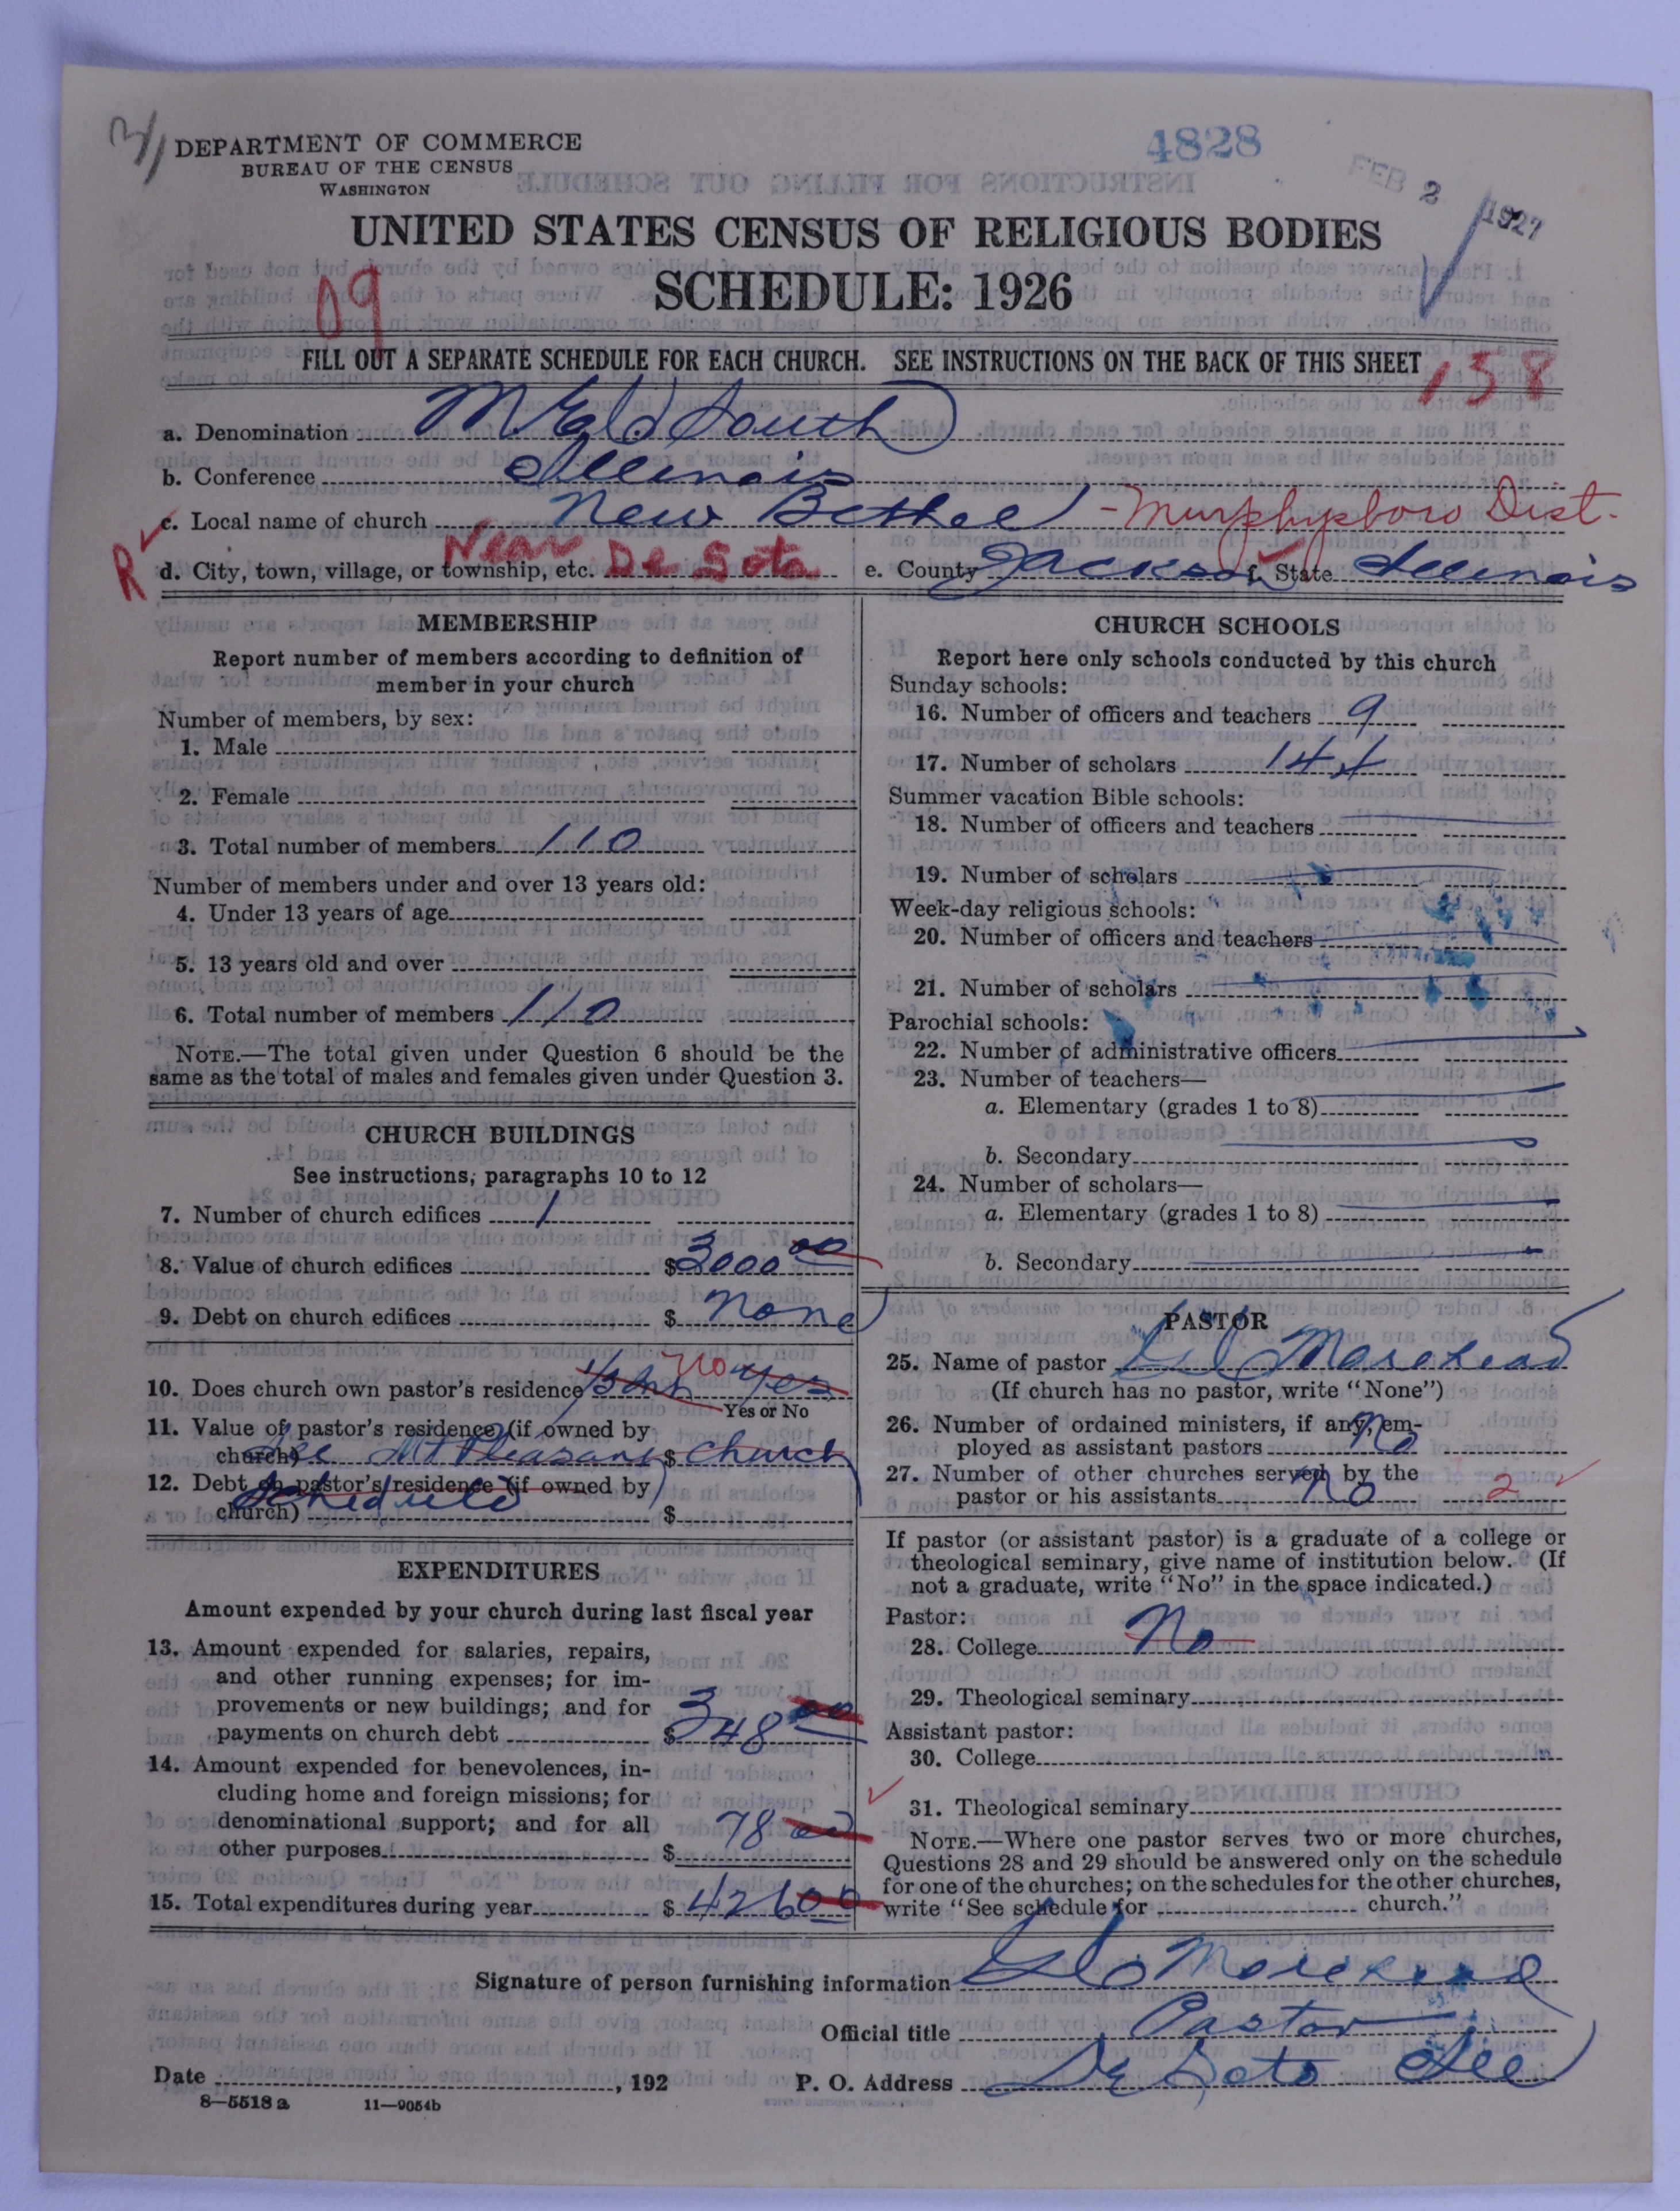 DEPARTMENT OF COMMERCE
BUREAU OF THE CENSUS
WASHINGTON
4828
FEB 2 1927
UNITED STATES CENSUS OF RELIGIOUS BODIES
SCHEDULE: 1926
09
FILL OUT A SEPARATE SCHEDULE FOR EACH CHURCH. SEE INSTRUCTIONS ON THE BACK OF THIS SHEET
138
a. Denomination M E Ch South
b. Conference Illinois
c. Local name of church New Bethel - Murphysboro Dist.
R d. City, town, village, or township, etc. Near De Soto e. County Jackson f. State Illinois
MEMBERSHIP
Report number of members according to definition of
member in your church
Number of members, by sex:
1. Male
2. Female
3. Total number of members 110
Number of members under and over 13 years old:
4. Under 13 years of age
5. 13 years old and over
6. Total number of members 110
NOTE.—The total given under Question 6 should be the
same as the total of males and females given under Question 3.
CHURCH BUILDINGS
See instructions, paragraphs 10 to 12
7. Number of church edifices 1
8. Value of church edifices $3000 00
9. Debt on church edifices $ none
10. Does church own pastor's residence no yes
Yes or No
11. Value of pastor's residence (if owned by
church) See Mt Pleasant $ church
12. Debt on pastor's residence (if owned by
Schedule
church) $
EXPENDITURES
Amount expended by your church during last fiscal year
13. Amount expended for salaries, repairs,
and other running expenses; for im-
provements or new buildings; and for
payments on church debt $348 00
14. Amount expended for benevolences, in-
cluding home and foreign missions; for
denominational support; and for all
other purposes $ 78 00
15. Total expenditures during year $ 426 00
CHURCH SCHOOLS
Report here only schools conducted by this church
Sunday schools:
16. Number of officers and teachers 9
17. Number of scholars 144
Summer vacation Bible schools:
18. Number of officers and teachers
19. Number of scholars
Week-day religious schools:
20. Number of officers and teachers
21. Number of scholars
Parochial schools:
22. Number of administrative officers
23. Number of teachers—
a. Elementary (grades 1 to 8)
b. Secondary
24. Number of scholars—
a. Elementary (grades 1 to 8)
b. Secondary
PASTOR
25. Name of pastor Morehead
(If church has no pastor, write "None")
26. Number of ordained ministers, if any, em-
ployed as assistant pastors No
27. Number of other churches served by the
pastor or his assistants No 2
If pastor (or assistant pastor) is a graduate of a college or
theological seminary, give name of institution below. (If
not a graduate, write "No" in the space indicated.)
Pastor:
28. College No
29. Theological seminary
Assistant pastor:
30. College
31. Theological seminary
NOTE.—Where one pastor serves two or more churches,
Questions 28 and 29 should be answered only on the schedule
for one of the churches; on the schedules for the other churches,
write "See schedule for church."
Signature of person furnishing information Morehead
Official title Pastor
Date , 192 P. O. Address De Soto Ill
8—5518 a 11—9054b